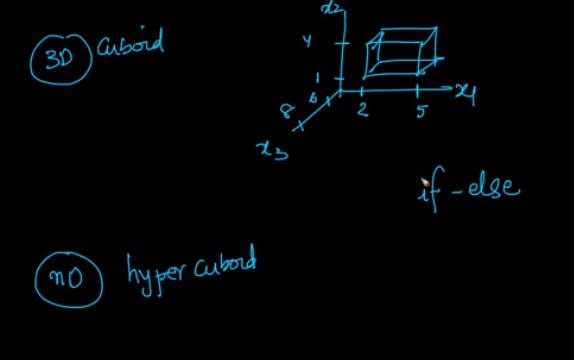 3D cuboid
x2
4
1
6
8
2
5
x1
x3
if-else
nD hyper cuboid